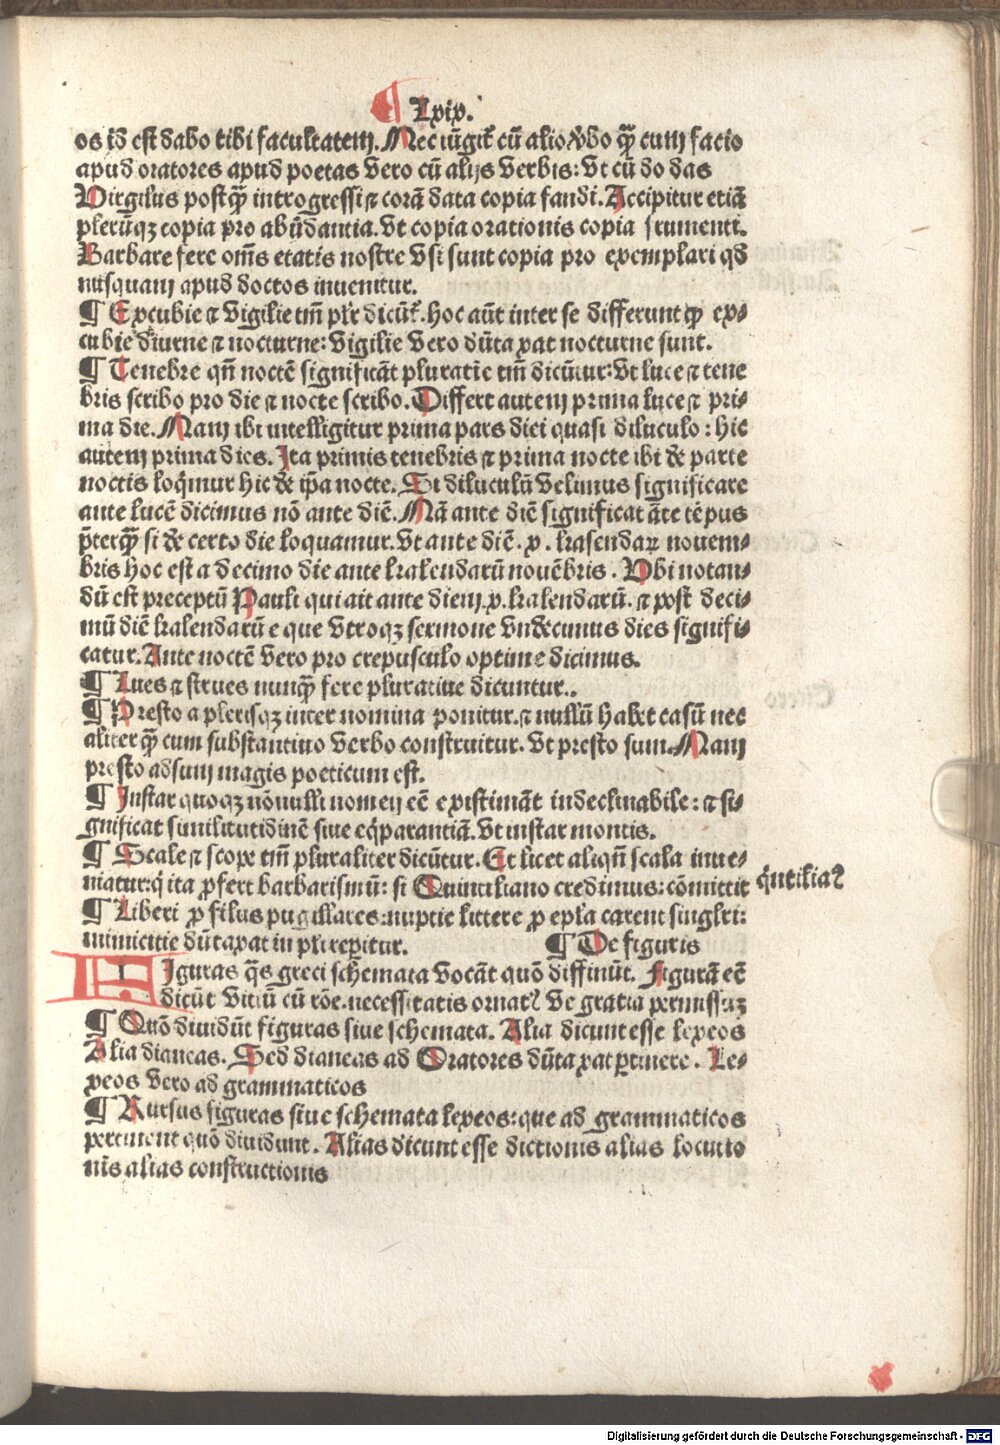 ¶ Lxix.
os id est dabo tibi facultatem. Nec iūgit᷑ cū alio v̓bo q̄ꝫ cum facio
apud oratores apud poetas vero cū alijs verbis: vt cū do das
Virgilius postq̄ꝫ introgressi ⁊ corā data copia fandi. Accipitur etiā
plerūqꝫ copia pro abūdantia. vt copia orationis copia frumenti.
Barbare fere om̄s etatis nostre vsi sunt copia pro exemplari qd̄
nusquam apud doctos inuenitur.
¶ Excubie ⁊ vigilie tm̄ plr̄ dicūt᷑. hoc aūt inter se differunt ꝙ ex⸗
cubie diurne ⁊ nocturne: vigilie vero dūtaxat nocturne sunt.
¶ Tenebre qn̄ noctē significāt pluratīe tm̄ dicūtur: vt luce ⁊ tene
bris scribo pro die ⁊ nocte scribo. Differt autem prima luce ⁊ pri⸗
ma die. Nam ibi intelligitur prima pars diei quasi diluculo: hic
autem prima dies. Ita primis tenebris ⁊ prima nocte ibi de parte
noctis loq̄mur hic de ip̄a nocte. Si diluculū velimus significare
ante lucē dicimus nō ante diē. Nā ante diē significat āte tēpus
p̄terq̄ꝫ si de certo die loquamur. vt ante diē . x . kalendaꝝ nouem⸗
bris hoc est a decimo die ante kalendarū nouēbris . Vbi notan⸗
dū est preceptū Pauli qui ait ante diem .x. kalendarū. ⁊ post deci⸗
mū diē kalendarū e que vtroqꝫ sermone vndecimus dies signifi⸗
catur. Ante noctē vero pro crepusculo optime dicimus.
¶ Lues ⁊ strues nunq̄ꝫ fere pluratiue dicuntur..
¶ Presto a plerisqꝫ inter nomina ponitur. ⁊ nullū habet casū nec
aliter q̄ꝫ cum substantiuo verbo construitur. vt presto sum. Nam
presto adsum magis poeticum est.
¶ Instar quoqꝫ nōnulli nomen eē existimāt indeclinabile: ⁊ si⸗
gnificat similitutidinē siue eq̄parantiā. vt instar montis.
¶ Scale ⁊ scope tm̄ pluraliter dicūtur. Et licet aliqn̄ scala inue⸗
niatur: q̇ ita ꝓfert barbarismū: si Quintiliano credimus: cōmittit
q̇ntilia᷒
¶ Liberi ꝓ filus pugillares: nuptie littere ꝓ epl̄a carent singlr̄i:
inimicitie dūtaxat in pli reperitur. ¶ De figuris
Figuras q̄s greci schemata vocāt quō diffiniūt. Figurā eē
dicūt vitiū cū rōe. necessitatis ornat᷒ ve gratia permissuꝫ
¶ Quō diuidūt figuras siue schemata. Alia dicunt esse lexeos
Alia dianeas. Sed dianeas ad Oratores dūtaxat ꝑtinere . Le⸗
xeos vero ad grammaticos
¶ Rursus figuras siue schemata lexeos: que ad grammaticos
pertinent quō diuidunt. Alias dicunt esse dictionis alias locutio
nis alias constructionis
Digitalisierung gefördert durch die Deutsche Forschungsgemeinschaft - DFG